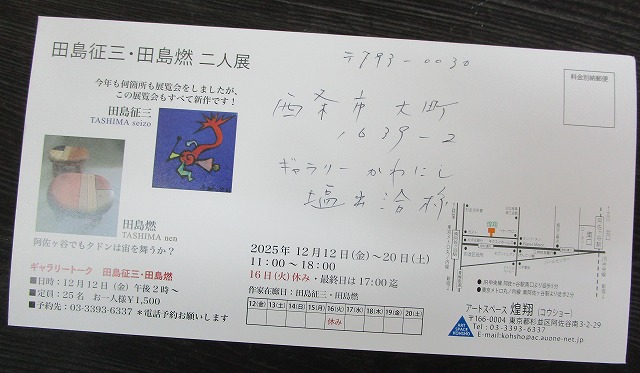 田島征三・田島燃 二人展
今年も何箇所も展覧会をしましたが、
この展覧会もすべて新作です！
田島征三
TASHIMA seizo
田島燃
TASHIMA nen
阿佐ヶ谷でもタドンは宙を舞うか？
ギャラリートーク 田島征三・田島燃
■日時：12月12日（金）午後2時〜
■定員：25名 お一人様¥1,500
■予約先：03-3393-6337 *電話予約お願いします
〒793-0030
西条市大町
1639-2
ギャラリーかわにし
塩出治
料金別納郵便
2025年 12月12日(金)〜20日(土)
11:00〜18:00
16日(火)休み・最終日は17:00迄
作家在廊日：田島征三・田島燃
12(金) 13(土) 14(日) 15(月) 16(火) 17(水) 18(木) 19(金) 20(土)
休み
煌翔
ART SPACE KOHSHO
アートスペース 煌翔［コウショー］
〒166-0004 東京都杉並区阿佐谷南3-2-29
Tel：03-3393-6337
E-mail:kohsho@ac.auone-net.jp